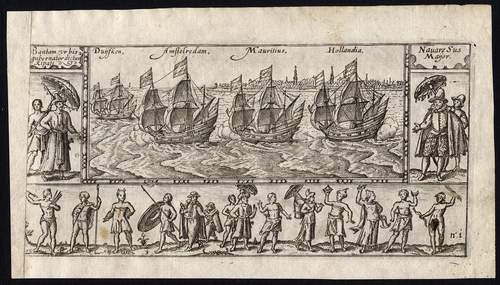 Bantam
gubernator
Duyfken,
Amstelredam,
Mauritius,
Hollandia,
Nauare Sua
Major.
n° 1